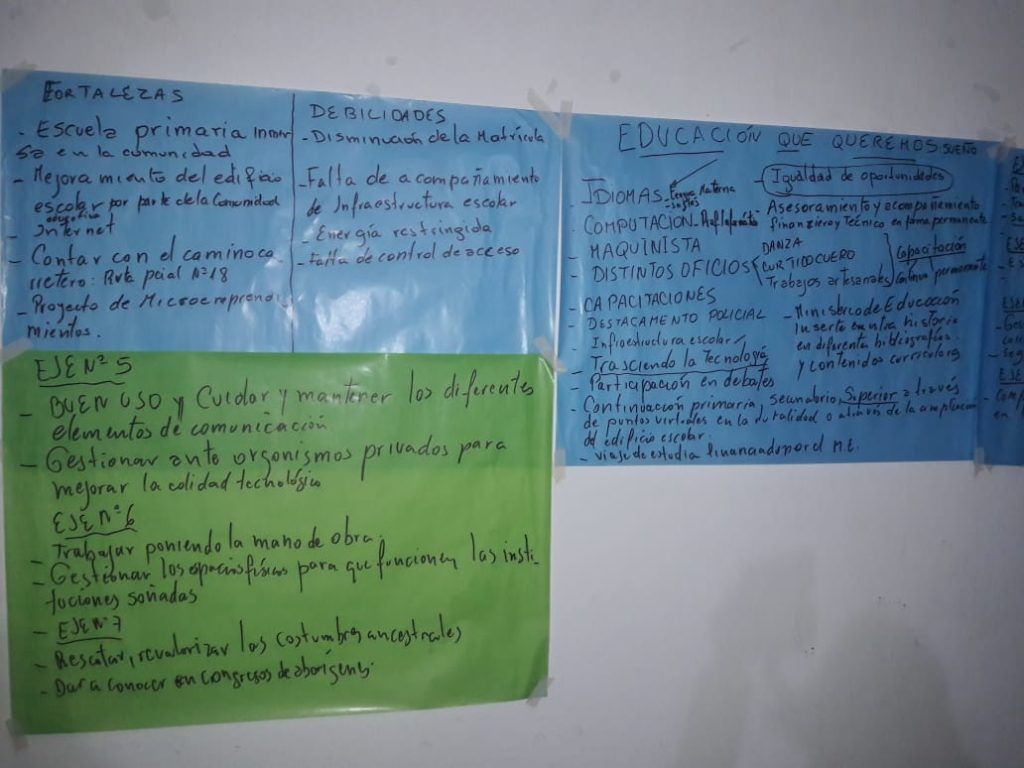 FORTALEZAS
- Escuela primaria inmer
sa en la comunidad
- Mejoramiento del edificio
escolar por parte de la comunidad
educativa
- Internet
- Contar con el camino ca
rretero: Ruta pcial Nº 18
- Proyecto de Microempren
mientos.
DEBILIDADES
- Disminución de la Matrícula
- Falta de acompañamiento
de Infraestructura escolar
- Energía restringida
- Falta de control de acceso
EDUCACIÓN QUE QUEREMOS SUEÑO
- IDIOMAS Lengua Materna
Inglés
- COMPUTACION
- MAQUINISTA
- DISTINTOS OFICIOS DANZA
CURTIDO CUERO
Trabajos artesanales
- CAPACITACIONES
- DESTACAMENTO POLICIAL
- Infraestructura escolar
- Trasciendo la tecnología
- Participación en debates
- Continuación primaria, secundario, Superior a través
de puntos virtuales en la ruralidad o a través de la ampliación
del edificio escolar.
- Viaje de estudia financiado por el M.E.
- Igualdad de oportunidades
- Asesoramiento y acompañamiento
financiero y Técnico en forma permanente
Capacitación
continua permanente
- Ministerio de Educación
inserte en la historia
en diferente bibliografías
y contenidos curriculares
EJE Nº 5
- BUEN USO y Cuidar y mantener los diferentes
elementos de comunicación
- Gestionar ante organismos privados para
mejorar la calidad technológico
EJE Nº 6
- Trabajar poniendo la mano de obra.
- Gestionar los espacios físicos para que funcionen las insti
tuciones soñadas
- EJE Nº 7
- Rescatar, revalorizar las costumbres ancestrales
- Dar a conocer en congresos de aborígenes.